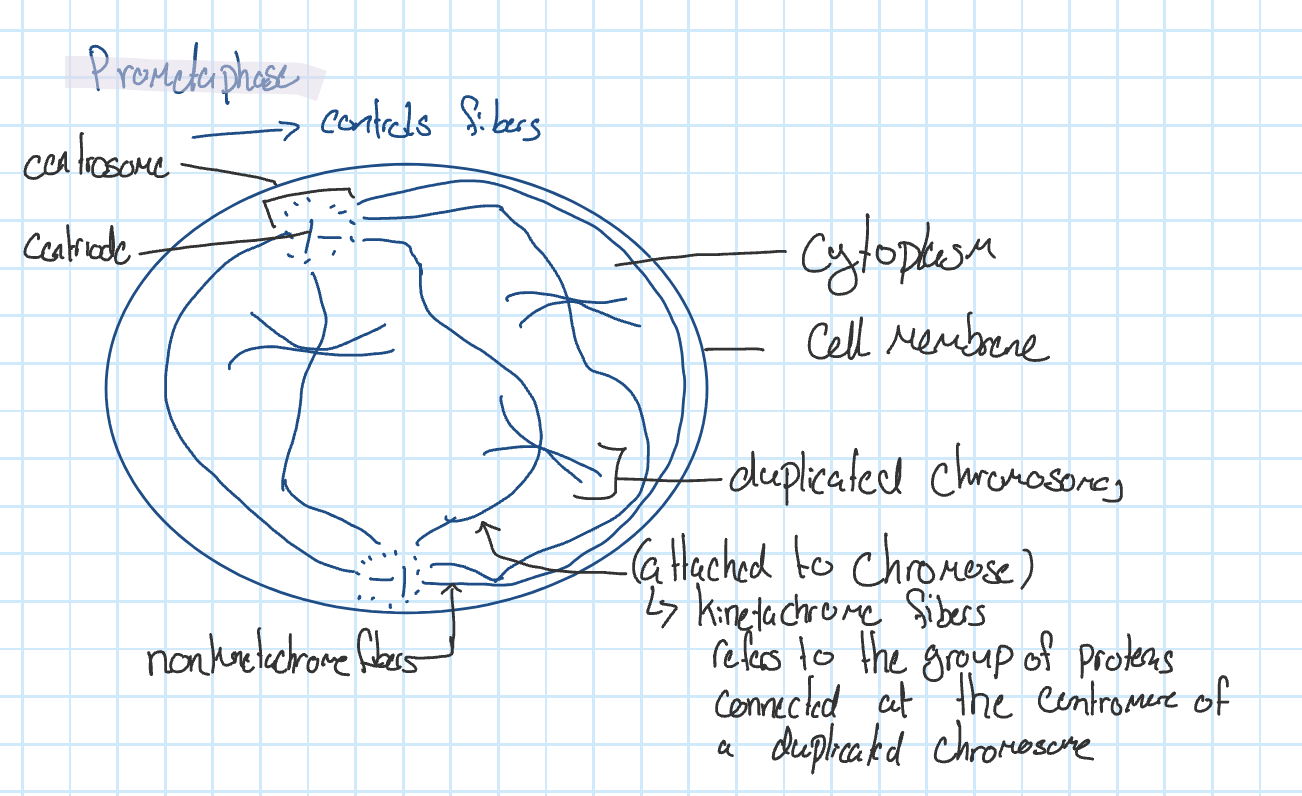 Prometaphase
→ controls fibers
centrosome
centriole
Cytoplasm
Cell Membrane
duplicated chromosomes
(attached to chromose)
↳ kinetachrome fibers
refers to the group of proteins
connected at the centromere of
a duplicated chromosome
nonkinetachrome fibers